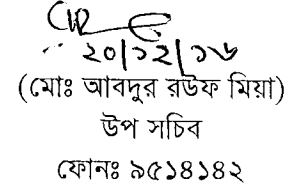 ২০/১২/১৬
(মোঃ আবদুর রউফ মিয়া)
উপ সচিব
ফোনঃ ৯৫১৪১৪২